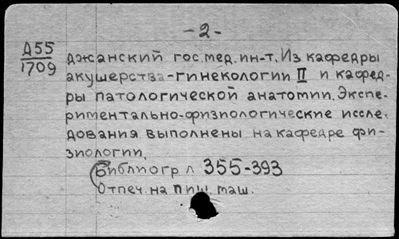 -2-
Д55
1709
джанский гос. мед. ин-т. Из кафедры
акушерства-гинекологии II и кафед-
ры патологической анатомии. Экспе-
риментально-физиологические иссле-
дования выполнены на кафедре фи-
зиологии.
Библиогр л 355-393
Отпеч. на пиш. маш.